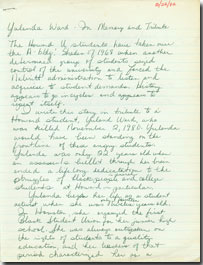 Yulanda Ward - In Memory and Tribute
The Howard U. students have taken over
the A-bldg. Shades of 1968 when another
determined group of students seized
control of the university and forced the
Nabrit administration to listen and
acquiesce to student demands. History
appears to go in cycles and appears
repeat itself.
I write this story in tribute to a
Howard student, Yulanda Ward, who
was killed November 2, 1980. Yulanda
would have been standing in the
frontline of these angry students.
Yulanda was only 22 years old when
an assassin's bullet through her brain
ended a lifelong dedication to the
struggles of Black people and college
students at Howard in particular.
Yulanda began her life as a student
activist when she was
In Houston she organized the first
Black Student Union for her junior high
school. She was always outspoken on
the rights of students to a quality
education and her leaders of that
period characterized her as a